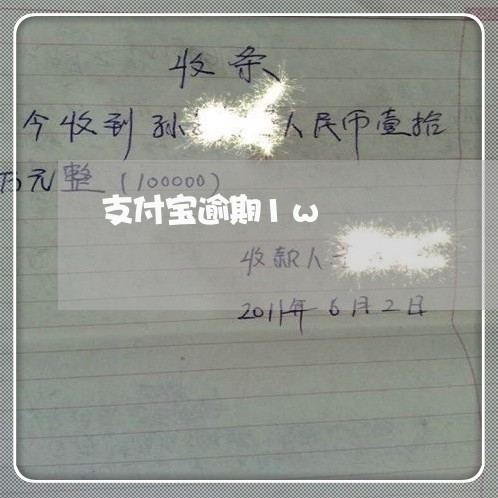 收条
今收到孙 人民币壹拾
万元整(100000)
支付宝逾期1w
收款人
2011年6月2日